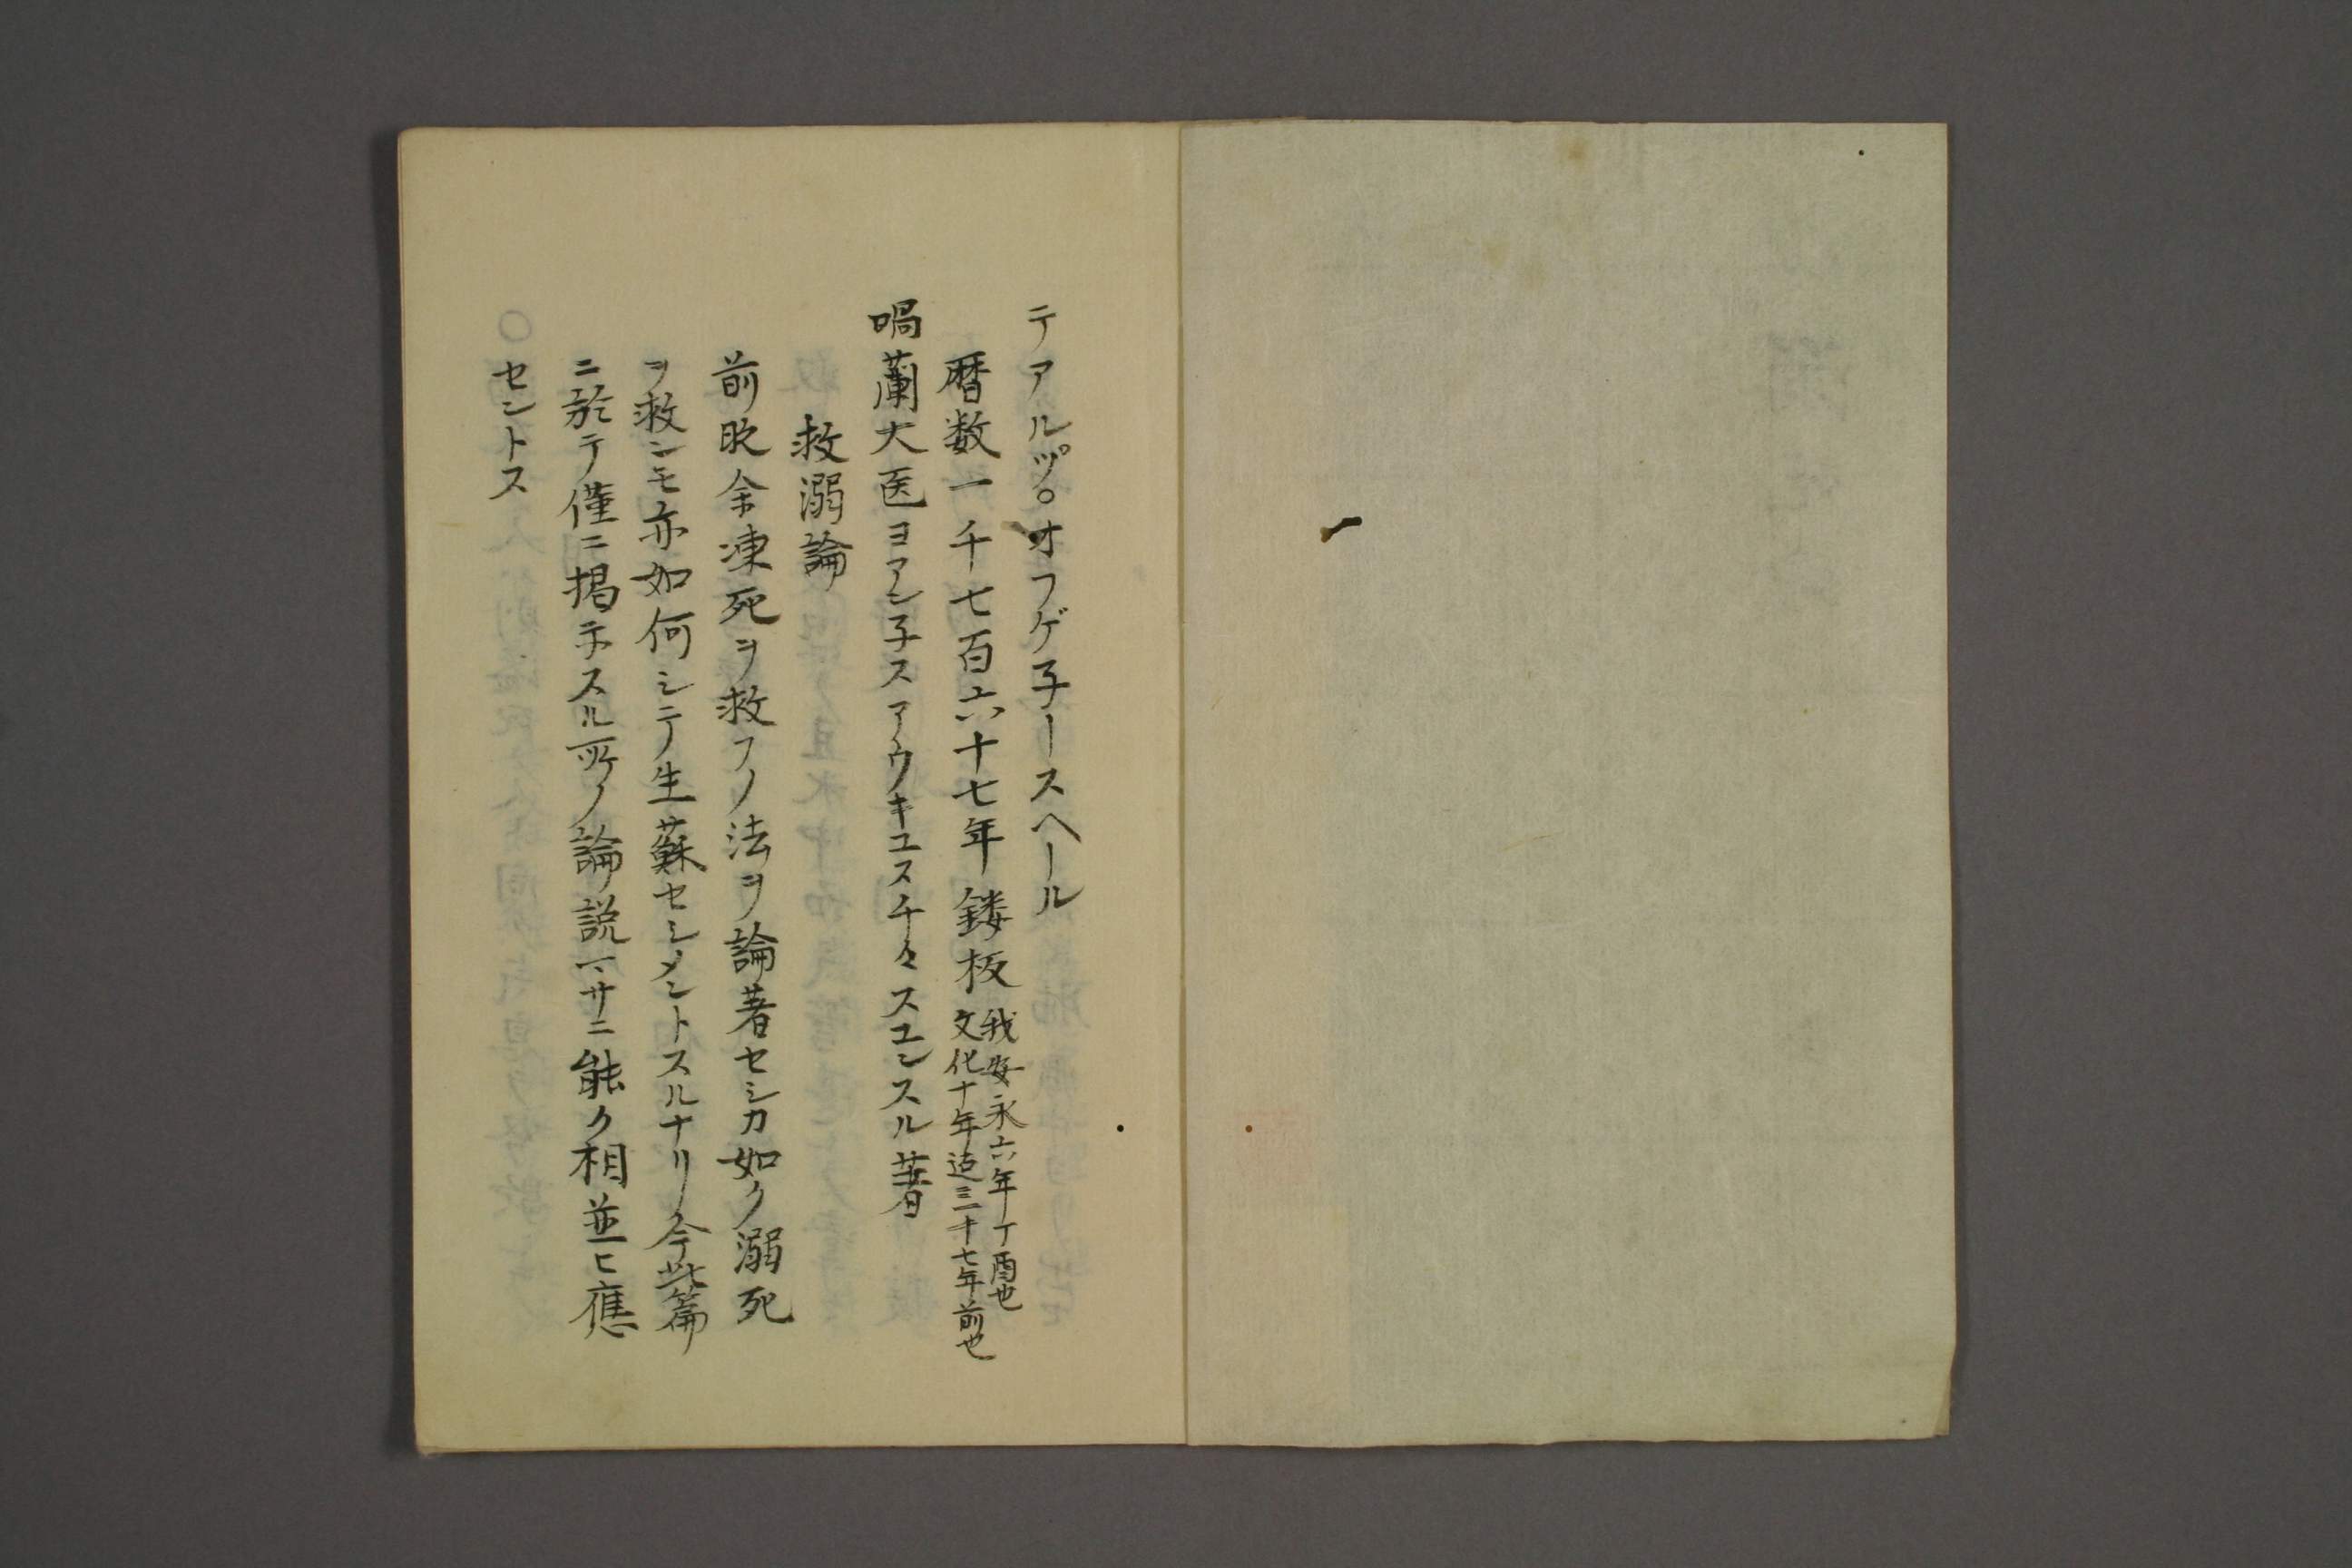 テアルツ゚。オフゲ子ースヘール
暦数一千七百六十七年鏤板
我安永六年丁酉也
文化十年迠三十七年前也
喎蘭大医ヨアン子スアウキユスチ々スユンスル著
救溺論
前昣余凍死ヲ救フノ法ヲ論著セシカ如ク溺死
ヲ救シモ亦如何シテ生蘇セシメントスルナリ今此篇
ニ於テ僅ニ掲示スル所ノ論説一サニ能ク相並ヒ應
セントス